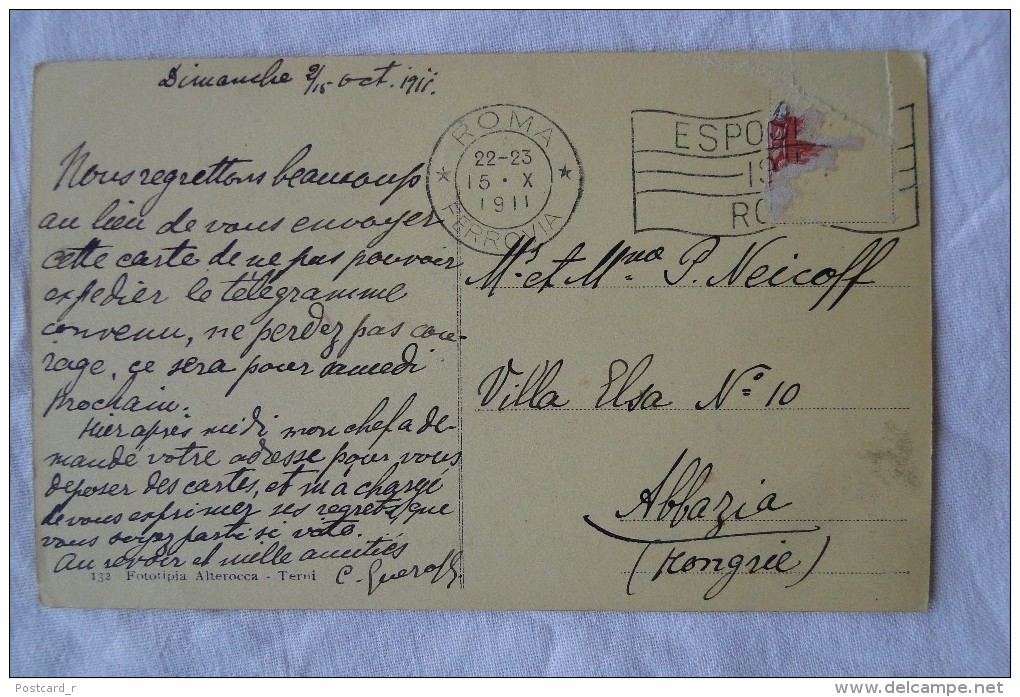 Dimanche 2/15 Oct. 1911.
ROMA
22-23
15 · X
1911
FERROVIA
ESPO
19
RO
Nous regrettons beaucoup
au lieu de vous envoyer
cette carte de ne pas pouvoir
expedier le télégramme
convenu, ne perdez pas cou-
rage, ce sera pour samedi
prochain.
Hier après midi mon chef a de-
mandé votre adesse pour vous
deposer des cartes, et m'a chargé
de vous exprimer ses regrets que
vous soyez parti si vite.
Au revoir et mille amitiés
C.
Mr et Mme P. Neicoff
Villa Elsa No 10
Abbazia
(Hongrie)
132 Fototipia Alterocca - Terni
Postcard_r
www.delcampe.net